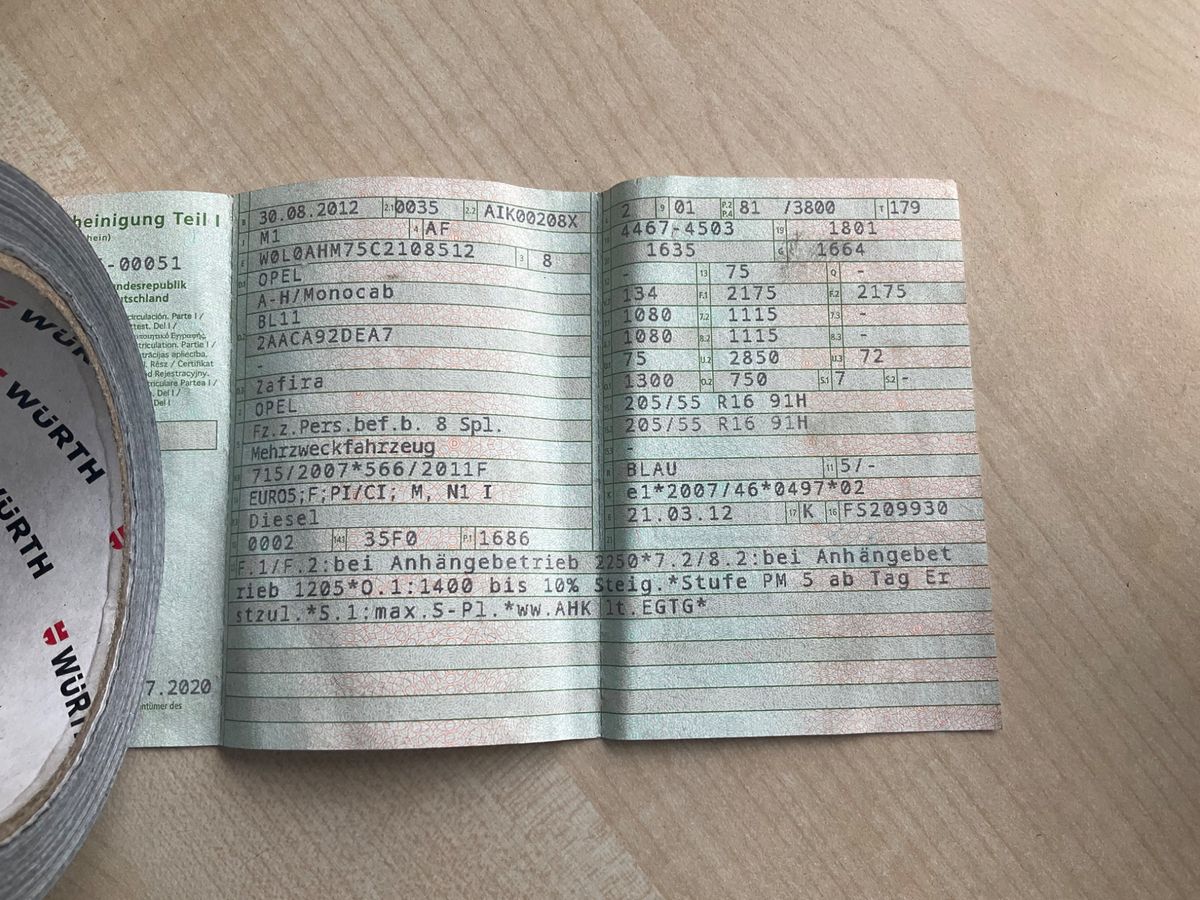 heinigung Teil I
hein)
-00051
undesrepublik
utschland
circulación. Parte I /
rtest. Del I /
triculation. Partie I /
strácijas apliecība,
I. Rész / Certifikat
d Rejestracyjny.
riculare Partea I /
. Del I /
7.2020
entümer des
B 30.08.2012 2.1 0035 2.2 AIK00208X
J M1 4 AF
E W0L0AHM75C2108512 3 8
D.1 OPEL
A-H/Monocab
BL11
D.2 2AACA92DEA7
-
D.3 Zafira
2 OPEL
5 Fz.z.Pers.bef.b. 8 Spl.
Mehrzweckfahrzeug
715/2007*566/2011F
EURO5;F;PI/CI; M, N1 I
Diesel
0002 14.1 35F0 P.1 1686
2 9 01 P.2 P.4 81 /3800 T 179
18 4467-4503 19 1801
20 1635 G 1664
- 13 75 Q -
134 F.1 2175 F.2 2175
1080 7.2 1115 7.3 -
1080 8.2 1115 8.3 -
75 U.2 2850 U.3 72
1300 O.2 750 S.1 7 S.2 -
15.1 205/55 R16 91H
15.2 205/55 R16 91H
15.3 -
R BLAU 11 5/-
K e1*2007/46*0497*02
6 21.03.12 17 K 16 FS209930
F.1/F.2:bei Anhängebetrieb 2250*7.2/8.2:bei Anhängebet
rieb 1205*O.1:1400 bis 10% Steig.*Stufe PM 5 ab Tag Er
stzul.*S.1:max.S-Pl.*ww.AHK lt.EGTG*
WÜR
WÜRTH
WÜRTH
WÜR